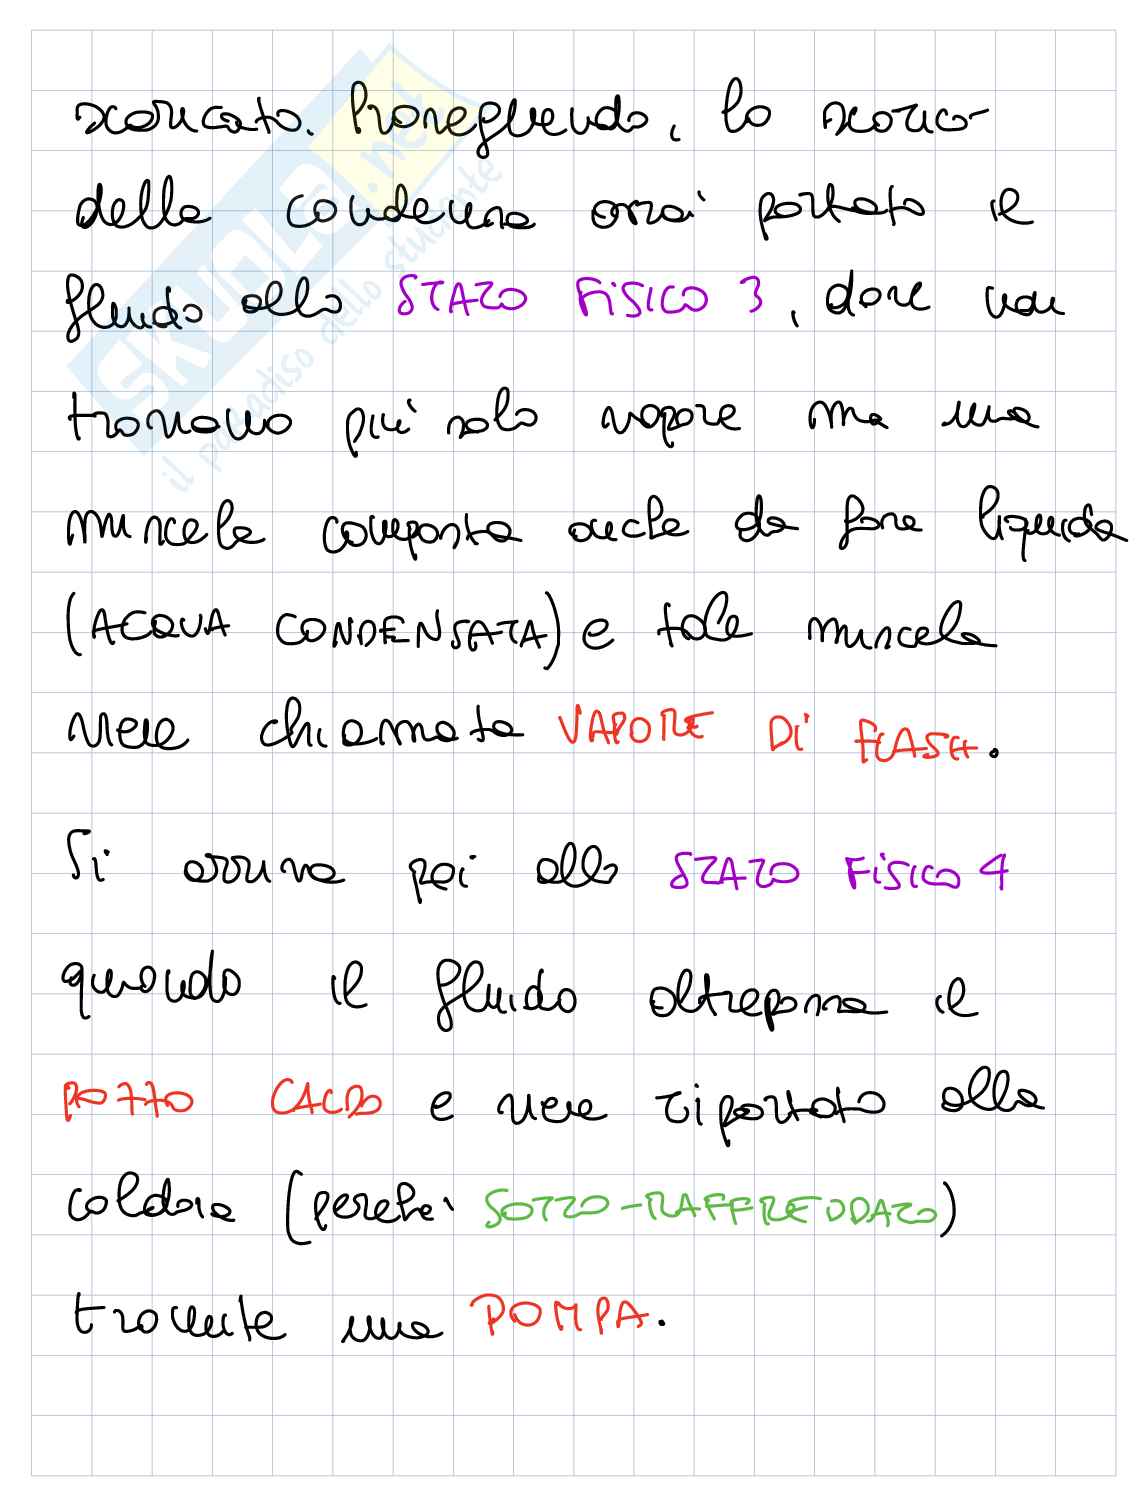 scaricato. Proseguendo, lo scarico
della condensa avrai portato il
fluido allo STATO FISICO 3, dove non
troviamo più solo vapore ma una
miscela composta anche da fase liquida
(ACQUA CONDENSATA) e tale miscela
viene chiamata VAPORE DI FLASH.
Si arriva poi allo STATO FISICO 4
quando il fluido oltrepassa il
POZZO CALDO e viene riportato alla
caldaia (perché SOTTO-RAFFREDDATO)
tramite una POMPA.
SKUOLA.net
il paradiso dello studente